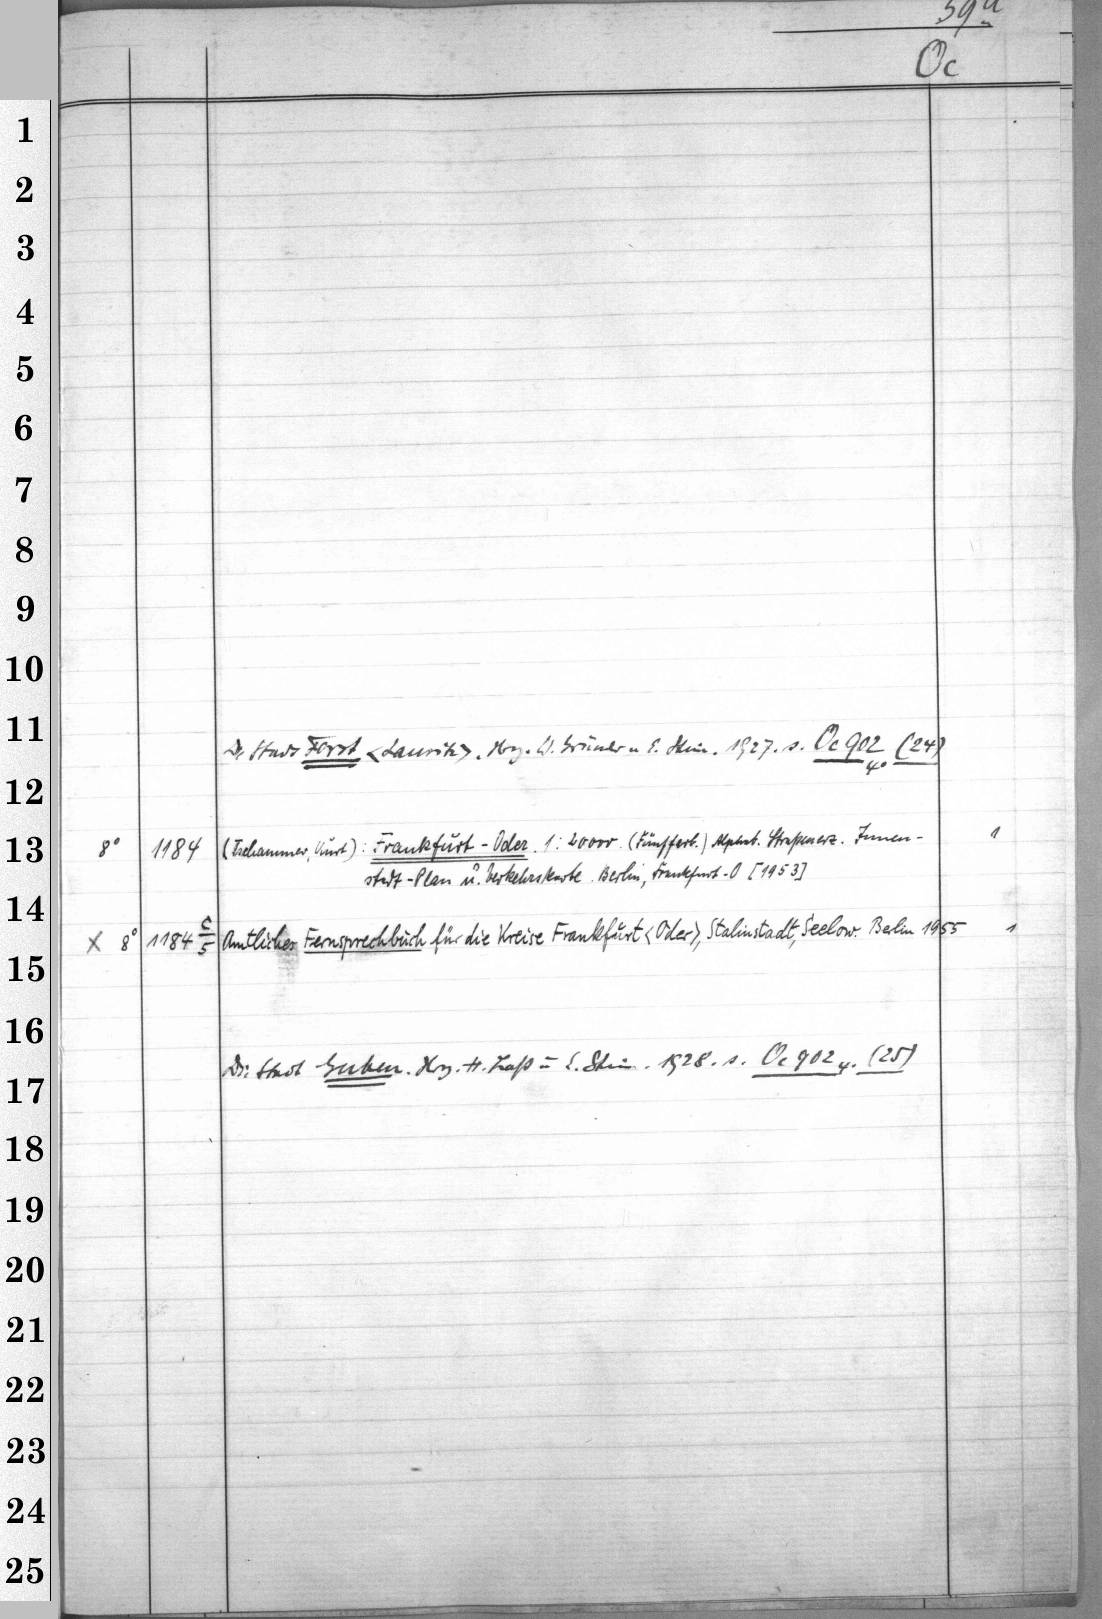 59a
Oc
1
2
3
4
5
6
7
8
9
10
11
Die Stadt Forst <Lausitz>. Hrg. W. Grüner u. E. Stein. 1927. s. Oc 902 4° (24)
12
13
8° 1184 (Tschammer, Kurt): Frankfurt-Oder. 1:20000 (Fünffarb.) Alphab. Straßenverz. Innen- 1
stadt-Plan u. Verkehrskarte. Berlin, Frankfurt-O [1953]
14
X 8° 1184 c/5 Amtliches Fernsprechbuch für die Kreise Frankfurt <Oder>, Stalinstadt, Seelow. Berlin 1955 1
15
16
Die Stadt Guben. Hrg. H. u. E. Stein. 1928. s. Oc 902 4° (25)
17
18
19
20
21
22
23
24
25